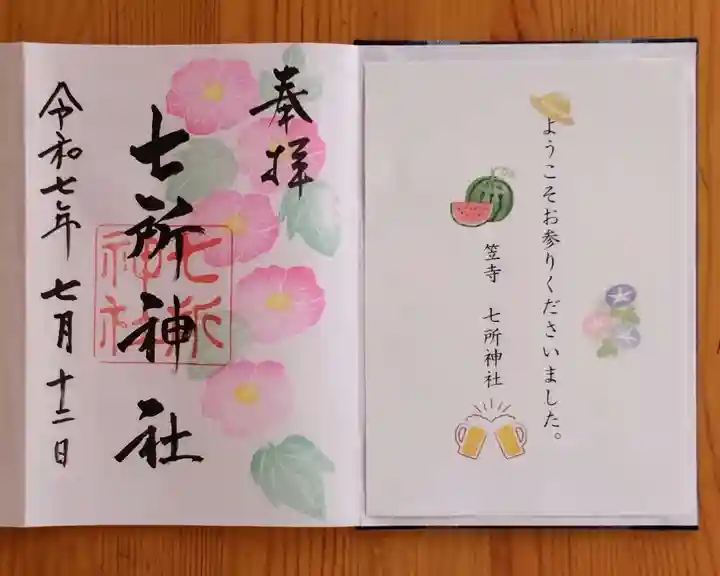 奉拝
七所神社
七所
神社
令和七年 七月十二日
ようこそお参りくださいました。
笠寺 七所神社